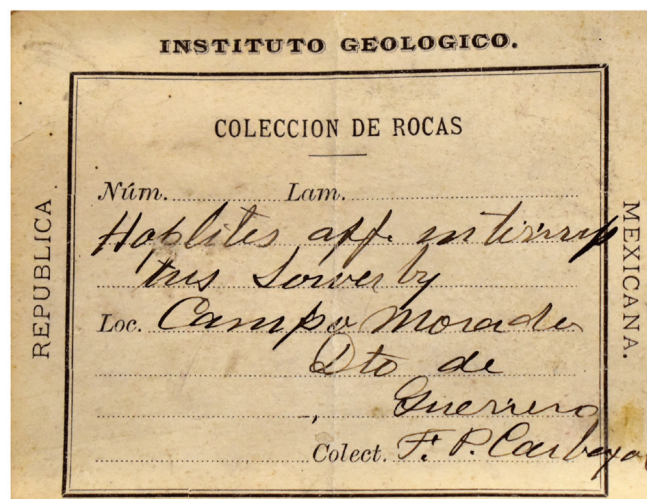 INSTITUTO GEOLOGICO.
REPUBLICA
MEXICANA.
COLECCION DE ROCAS
Núm. Lam.
Hoplites aff. interrup
tus Sowerby
Loc. Campo Morado
Dto de
Guerrero
Colect. F. P. Carbajal